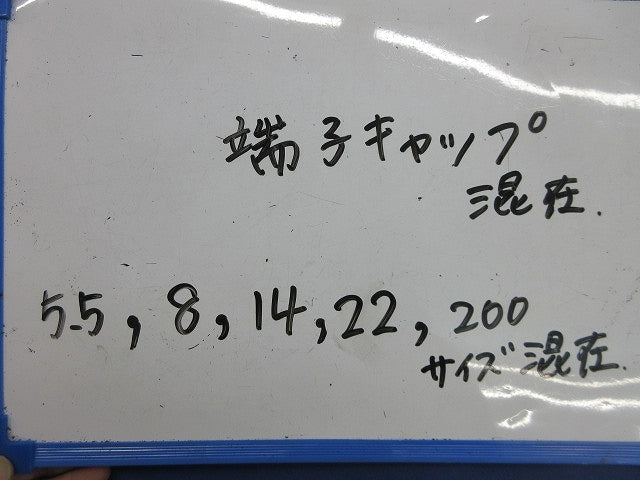 端子キャップ
混在.
5.5, 8, 14, 22, 200
サイズ混在.